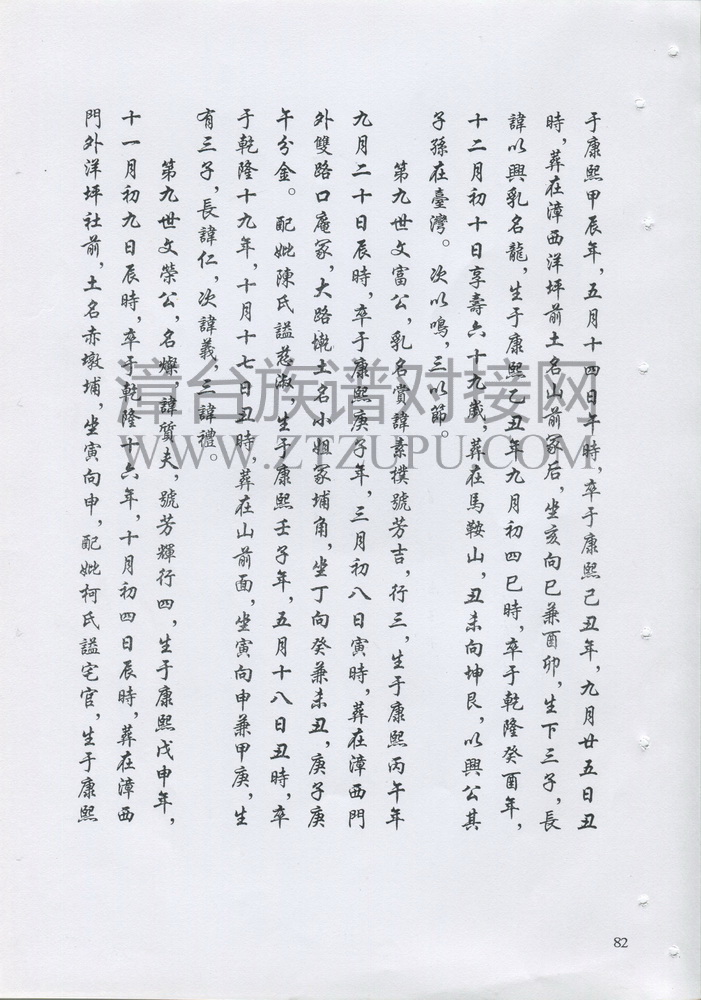 于康熙甲辰年，五月十四日午時，卒于康熙己丑年，九月廿五日丑
時，葬在漳西洋坪前土名山前冢后，坐亥向巳兼酉卯，生下三子，長
諱以興乳名龍，生于康熙乙丑年九月初四巳時，卒于乾隆癸酉年，
十二月初十日享壽六十九歲，葬在馬鞍山，丑未向坤艮，以興公其
子孫在臺灣。次以鳴，三以節。
第九世文富公，乳名賞諱素樸號芳吉，行三，生于康熙丙午年
九月二十日辰時，卒于康熙庚子年，三月初八日寅時，葬在漳西門
外雙路口庵冢，大路墘土名小姐冢埔角，坐丁向癸兼未丑，庚子庚
午分金。配妣陳氏謚慈淑，生于康熙壬子年，五月十八日丑時，卒
于乾隆十九年，十月十七日丑時，葬在山前面，坐寅向申兼甲庚，生
有三子，長諱仁，次諱義，三諱禮。
第九世文榮公，名燦，諱質夫，號芳輝行四，生于康熙戊申年，
十一月初九日辰時，卒于乾隆十六年，十月初四日辰時，葬在漳西
門外洋坪社前，土名赤墩埔，坐寅向申，配妣柯氏謚宅官，生于康熙
漳台族谱对接网
WWW.ZTZUPU.COM
82